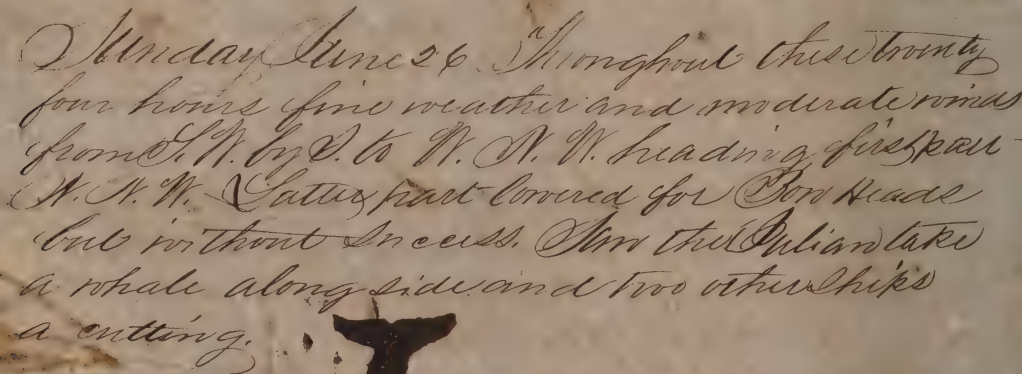 Sunday June 26 Throughout these twenty
four hours fine weather and moderate winds
from S. W. by S. to W. N. W. heading first part
N. N. W. Latter part lowered for Bow Heads
but without success. Saw the Julian take
a whale along side and two other Ships
a cutting.